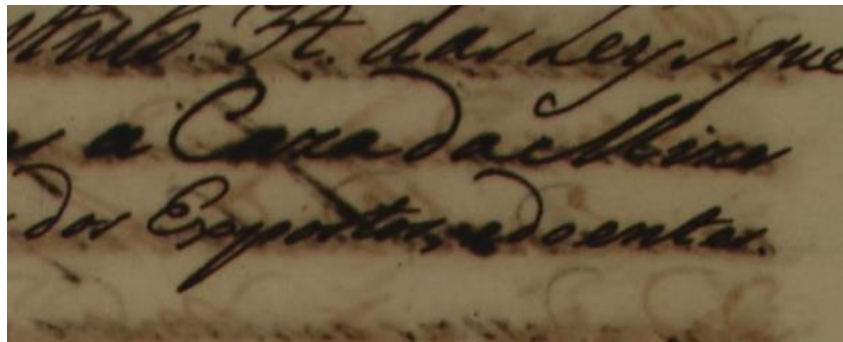 titulo. 34. das Leys que
a Caza da Mize
dos Expostos, e doentes.